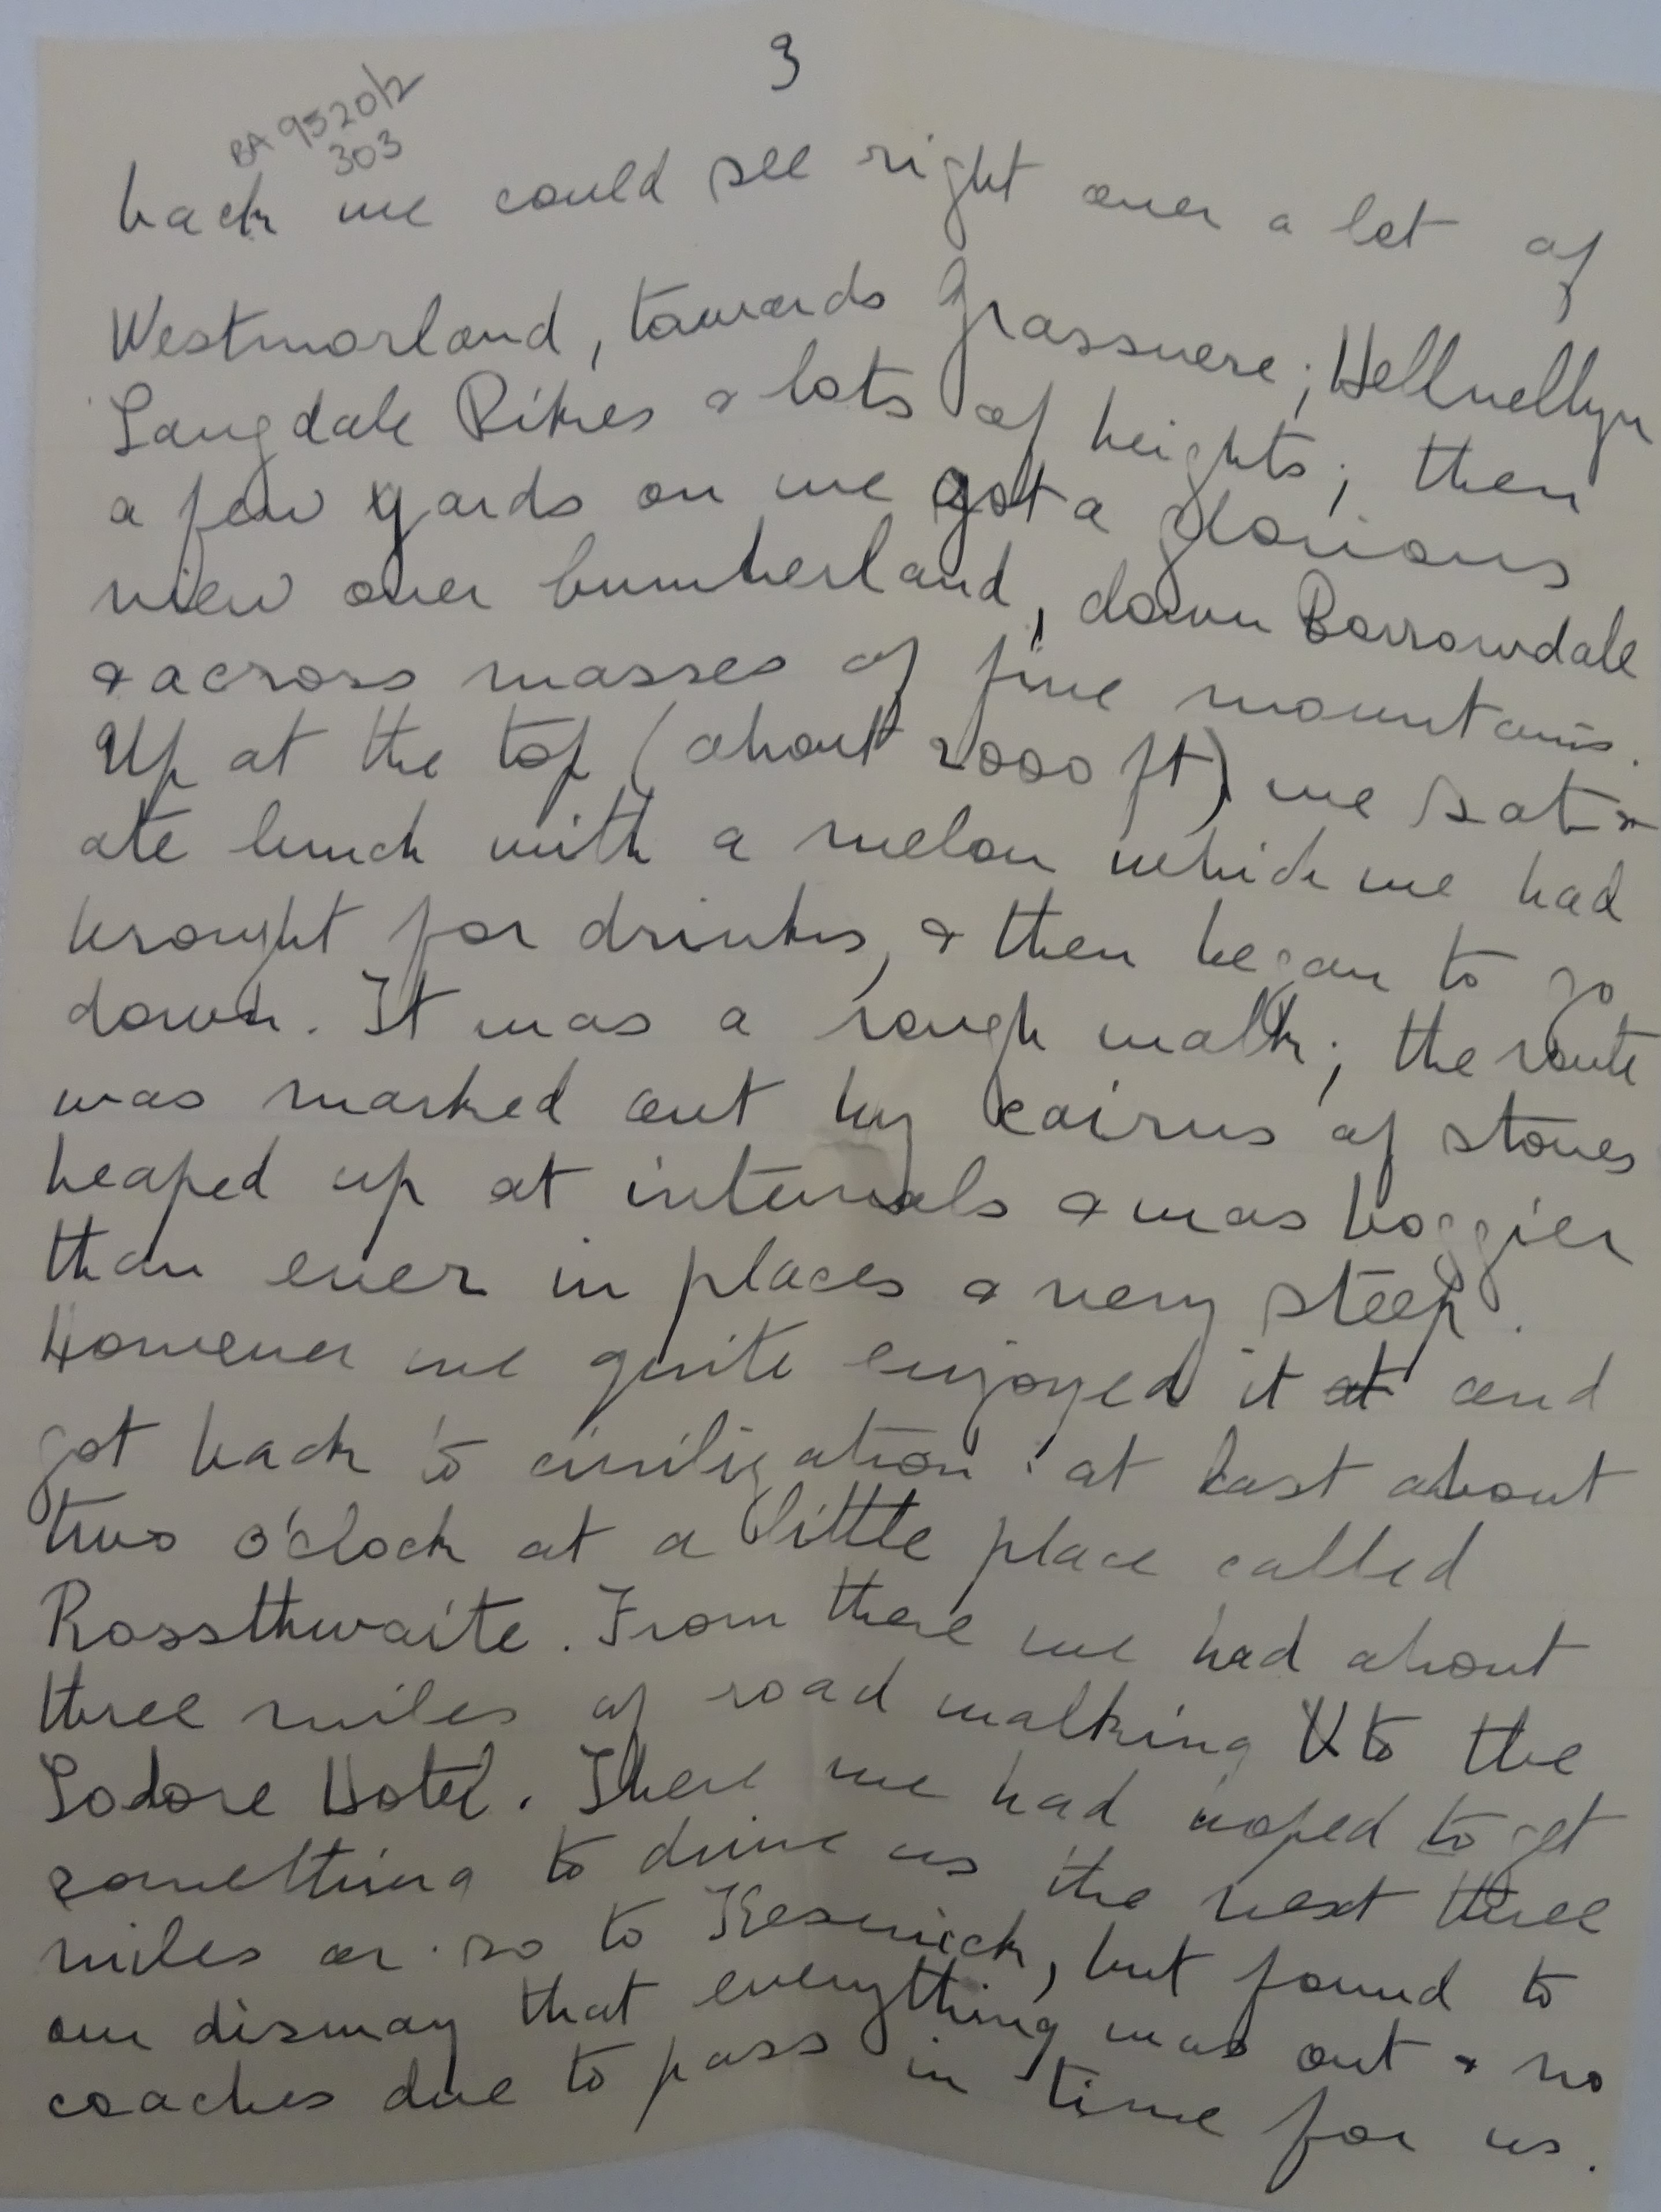 3
BA 9520/2
303
back we could see right over a lot of
Westmorland, towards Grassmere; Hellvellyn
Langdale Pikes & lots of heights; then
a few yards on we got a glorious
view over Cumberland, down Borrowdale
& across masses of fine mountains.
Up at the top (about 2000 ft) we sat &
ate lunch with a melon which we had
brought for drinks, & then began to go
down. It was a rough walk; the route
was marked out by cairns of stones
heaped up at intervals & was boggier
than ever in places & very steep.
However we quite enjoyed it at and
got back to civilization at last about
two o'clock at a little place called
Rossthwaite. From there we had about
three miles of road walking to the
Lodore Hotel. There we had hoped to get
something to drive us the next three
miles or so to Keswick, but found to
our dismay that everything was out & no
coaches due to pass in time for us.